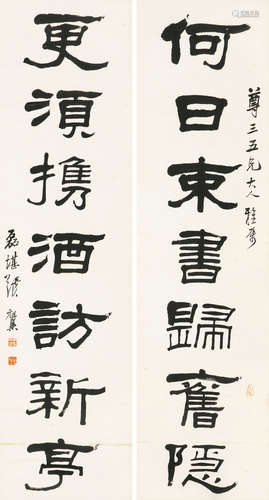 尊三五兄大人雅屬
何日束書歸舊隱
更須攜酒訪新亭